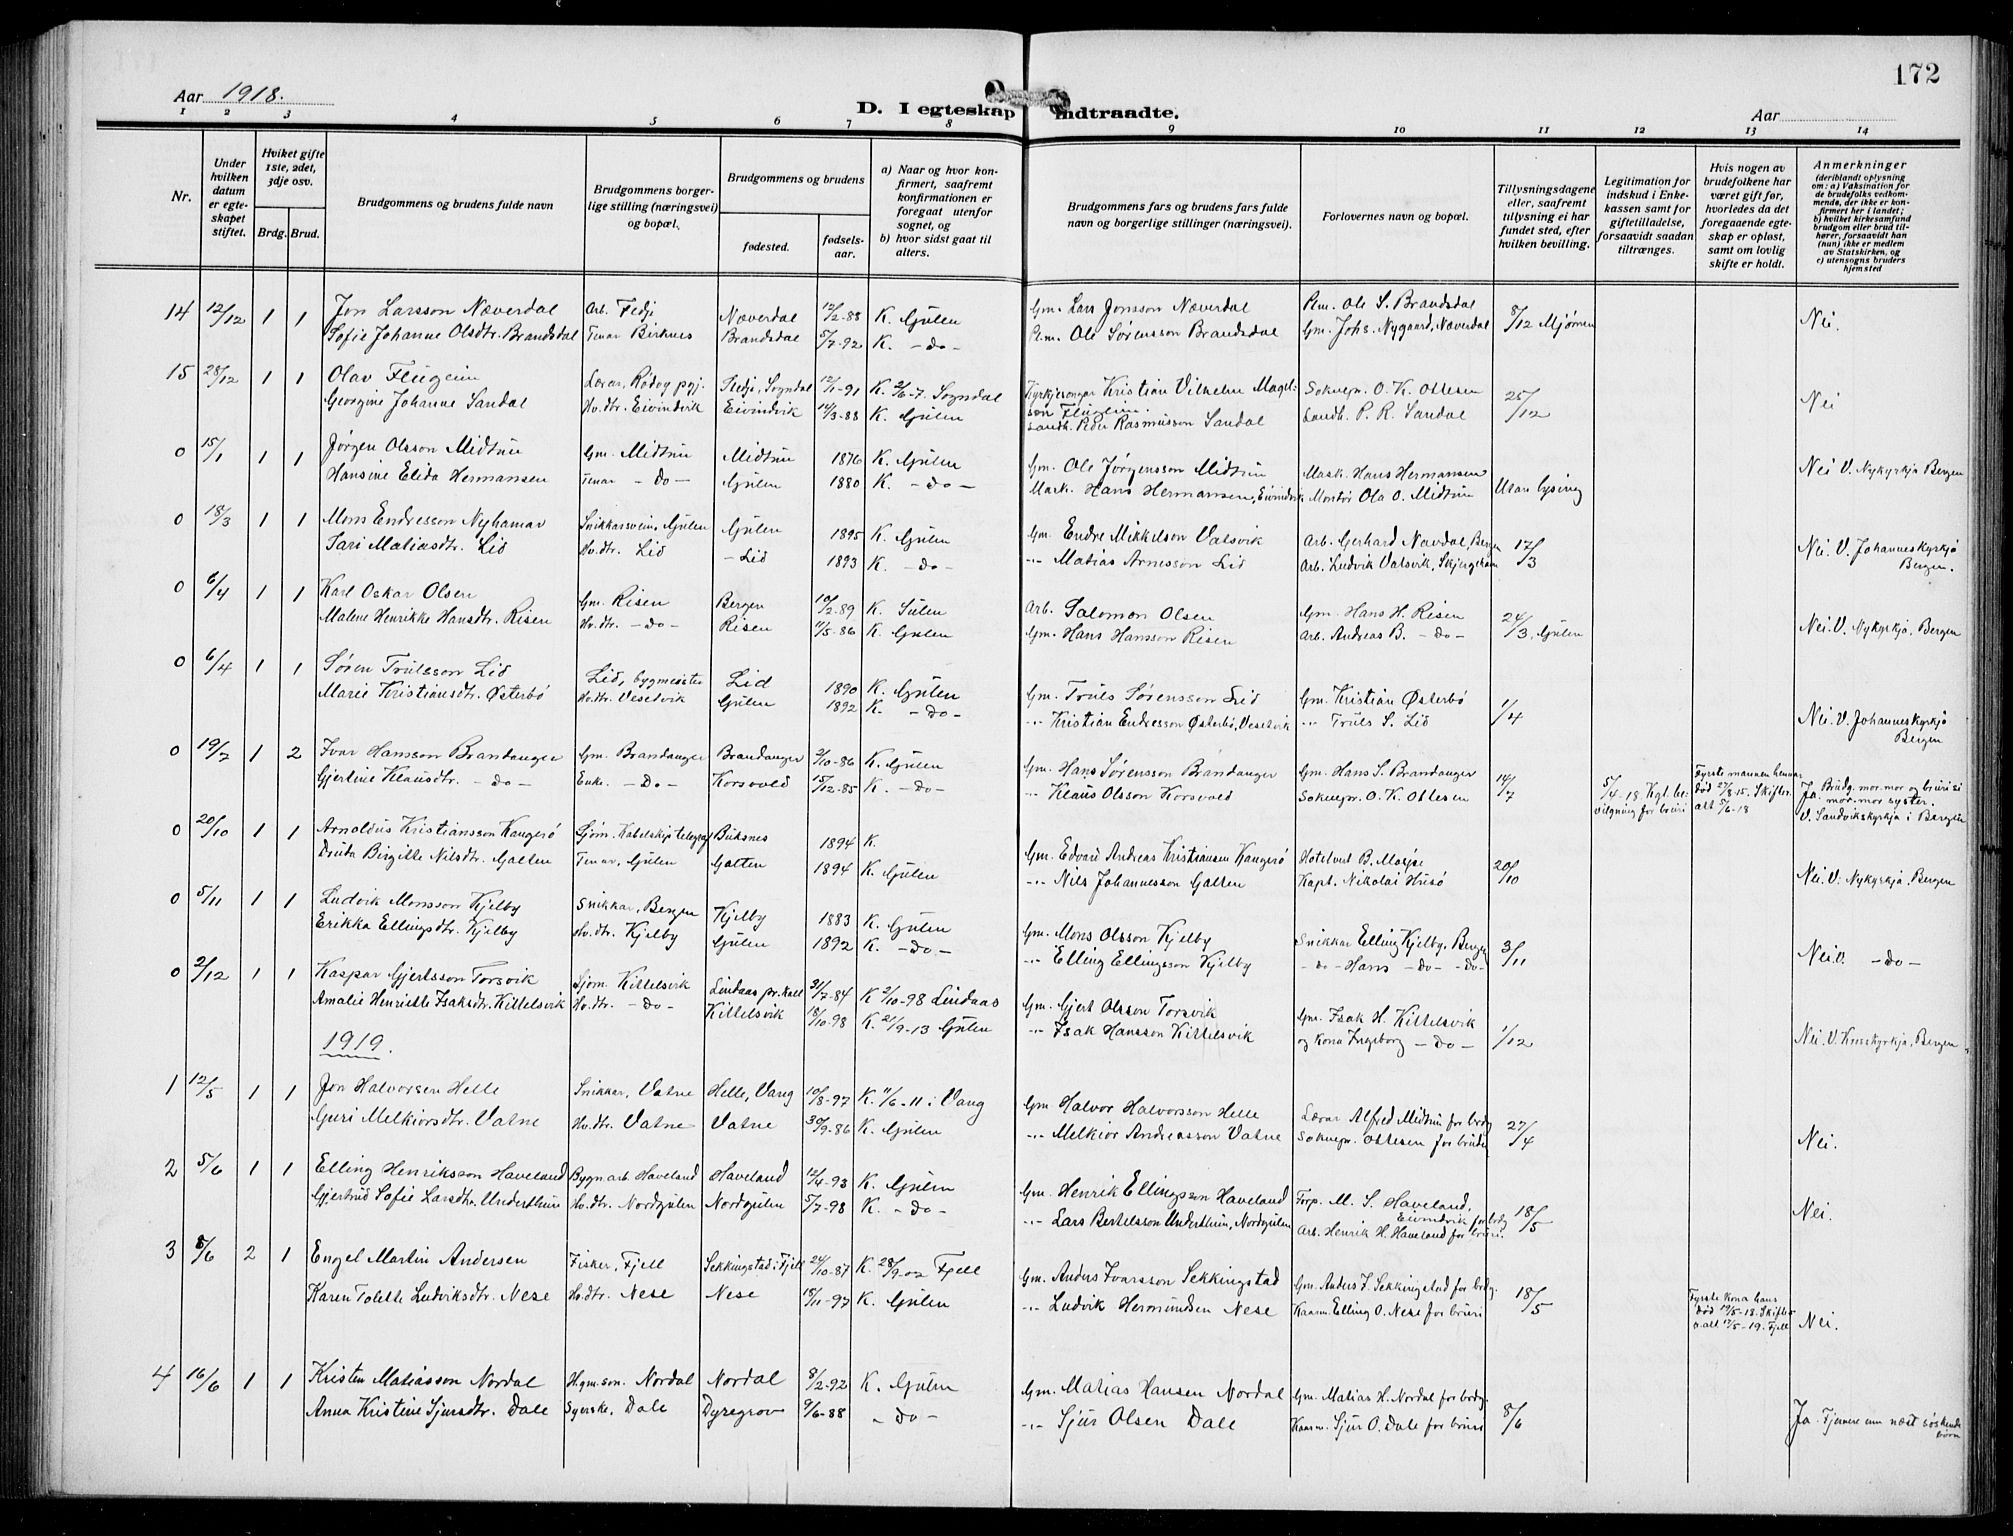 172
Aar 1918.
D. I egteskap indtraadte.
Aar
1 2 3 4 5 6 7 8 9 10 11 12 13 14
Nr.
Under hvilken datum er egteskapet stiftet.
Hviket gifte 1ste, 2det, 3dje osv.
Brdg. Brud.
Brudgommens og brudens fulde navn
Brudgommens borgerlige stilling (næringsvei) og bopæl.
Brudgommens og brudens
fødested.
fødselsaar.
a) Naar og hvor konfirmert, saafremt konfirmationen er foregaat utenfor sognet, og
b) hvor sidst gaat til alters.
Brudgommens fars og brudens fars fulde navn og borgerlige stillinger (næringsvei).
Forlovernes navn og bopæl.
Tillysningsdagene eller, saafremt tillysning ei har fundet sted, efter hvilken bevilling.
Legitimation for indskud i Enkekassen samt for giftetilladelse, forsaavidt saadan tiltrænges.
Hvis nogen av brudefolkene har været gift før, hvorledes da det foregaaende egteskap er opløst, samt om lovlig skifte er holdt.
Anmerkninger (deriblandt oplysning om: a) Vaksination for de brudefolks vedkommende, der ikke er konfirmert her i landet; b) hvilket kirkesamfund brudgom eller brud tilhører, forsaavidt han (hun) ikke er medlem av Statskirken, og c) utensogns bruders hjemsted
14 12/12 1 1 Jon Larsson Næverdal Arb. Fedje Næverdal 12/2-88 K. Gulen Gm. Lars Jonsson Næverdal Plm. Ole S. Brandsdal 8/12 Mjømen Nei.
Sofie Johanne Olsdtr. Brandsdal Tenar Birknes Brandsdal 5/7-92 K. -do- Plm. Ole Sørensson Brandsdal Gm. Johs. Nygaard, Næverdal
15 28/12 1 1 Olav Flugeim Lærar, Rødøy pgj. Stedje, Sogndal 12/1-91 K. 2/6-7 Sogndal Kyrkjesongar Kristian Vilhelm Magelsson Flugeim. Soknepr. O. K. Ottesen 25/12 Nei
Georgine Johanne Sandal Hv.dtr. Eivindvik Eivindvik 14/3-88 K. Gulen Landh. Peder Rasmusson Sandal Landh. P. R. Sandal
0 15/1 1 1 Jørgen Olsson Midtun Gm. Midtun Midtun 1876 K. Gulen Gm. Ole Jørgensson Midtun Mask. Hans Hermansen Utan lysing Nei V. Nykyrkja Bergen
Hansine Elida Hermansen Tenar -do- Gulen 1880 K. -do- Mask. Hans Hermansen, Eivindvik Montør Ola O. Midtun
0 18/3 1 1 Mons Endresson Nyhamar Snikkarsvein, Gulen Gulen 1895 K. Gulen Gm. Endre Mikkelson Valsvik Arb. Gerhard Nævdal, Bergen 17/3 Nei. V. Johanneskyrkjo Bergen.
Sari Matiasdtr. Lid Hv.dtr. Lid - Lid 1893 K. -do- -"- Matias Arnesson Lid Arb. Ludvik Valsvik, Skjergehamn
0 6/4 1 1 Karl Oskar Olsen Gm. Risen Bergen 10/2-89 K. Sulen Arb. Salomon Olsen Gm. Hans H. Risen 24/3 Gulen Nei. V. Nykyrkja, Bergen
Malene Henrikke Hansdtr. Risen Hv.dtr. -do- Risen 11/5-86 K. Gulen Gm. Hans Hansson Risen Arb. Andreas B. -do-
0 6/4 1 1 Søren Trulsson Lid Lid, bygmeister Lid 1890 K. Gulen Gm. Truls Sørensson Lid Gm. Kristian Østerbø 1/4 Nei. V. Johanneskyrkjo Bergen
Marie Kristiansdtr. Østerbø Hv.dtr. Vesetvik Gulen 1892 K. -do- -"- Kristian Endresson Østerbø, Vesetvik -"- Truls S. Lid
0 19/7 1 2 Ivar Hansson Brandanger Gm. Brandanger Brandanger 2/10-86 K. Gulen Gm. Hans Sørensson Brandanger Gm. Hans S. Brandanger 14/7 5/4-18 Kgl. bevilgning for bruri Fyrste mannen hennar død 27/8-15. Skifter alt 5/6-18 Ja. Brudg. mor.mor og bruri si mor.mor syster. V. Sandvikskyrkja i Bergen
Gjertine Klausdtr. -do- Enke. -do- Korsvold 15/12-85 K. -do- -"- Klaus Olsson Korsvold Soknepr. O. K. Ottesen
0 20/10 1 1 Arnoldus Kristiansson Kangerø Sjøm. Kabelskip telegraf Buksnes 1894 K. Gm. Edvard Andreas Kristiansen Kangerø Hotelvert B. Masje 20/10 Nei. V. Nykyrkja, Bergen
Druda Birgitte Nilsdtr. Galten Tenar, Gulen Galten 1894 K. Gulen -"- Nils Johannesson Galten Kapt. Nikolai Husø
0 5/11 1 1 Ludvik Monsson Kjelby Snikkar, Bergen Kjelby 1883 K. Gulen Gm. Mons Olsson Kjelby Snikkar Elling Kjelby, Bergen 3/11 Nei V. -do-
Erikka Ellingsdtr. Kjelby Hv.dtr. Kjelby Gulen 1892 K. -do- -"- Elling Ellingsson Kjelby -do- Hans -do- -do-
0 2/12 1 1 Kaspar Gjertsson Torsvik Sjøm. Kittelsvik Lindaas pr.kall 31/7-84 K 2/10-98 Lindaas Gm. Gjert Olsson Torsvik Gm. Isak H. Kittelsvik 1/12 Nei. V. Krosskyrkja, Bergen
Amalie Henriette Isaksdtr. Kittelsvik Hv.dtr. -do- Kittelsvik 18/10-98 K. 21/9-13 Gulen -"- Isak Hansson Kittelsvik og kona Ingeborg -do-
1919.
1 12/5 1 1 Jon Halvorsen Helle Snikkar, Vatne Helle, Vang 10/8-97 K. 11/6-11 i Vang Gm Halvor Halvorsson Helle Lærar Alfred Midtun for brdg 27/4 Nei.
Guri Melkiorsdtr. Vatne Hv.dtr. Vatne Vatne 30/9-86 K. Gulen -"- Melkior Andreasson Vatne Soknepr. Ottesen for bruri
2 5/6 1 1 Elling Henriksson Haveland Bygn.arb. Haveland Haveland 12/4-93 K. Gulen Gm. Henrik Ellingsson Haveland Forp. M. S. Haveland, Eivindvik for brdg 18/5 Nei.
Gjertrud Sofie Larsdtr. Underthun Hv.dtr. Nordgulen Nordgulen 5/7-98 K. -do- -"- Lars Bertelsson Underthun, Nordgulen Arb. Henrik H. Haveland for bruri.
3 8/6 2 1 Engel Martin Andersen Fisker, Fjell Sekkingstad i Fjell 24/10-87 K. 28/9-02 Fjell Gm. Anders Ivarsson Sekkingstad Gm. Anders I. Sekkingstad for brdg. 18/5 Fyrste kona hans død 19/5-18. Skifter alt 17/5-19. Fjell Nei.
Karen Tolette Ludviksdtr. Nese Hv.dtr. Nese Nese 18/11-97 K. Gulen -"- Ludvik Hermundsen Nese Kaarm. Elling O. Nese for bruri
4 16/6 1 1 Kristen Matiasson Nordal H.gm.son. Nordal Nordal 8/2-92 K. Gulen Gm. Matias Hansen Nordal Gm. Matias H. Nordal for brdg. 8/6 Ja. Fjernere enn næst søskendebørn
Anna Kristine Sjursdtr. Dale Syerske, Dale Dyregrov 9/6-88 -do- -"- Sjur Olsen Dale Kaarm. Sjur O. Dale for bruri